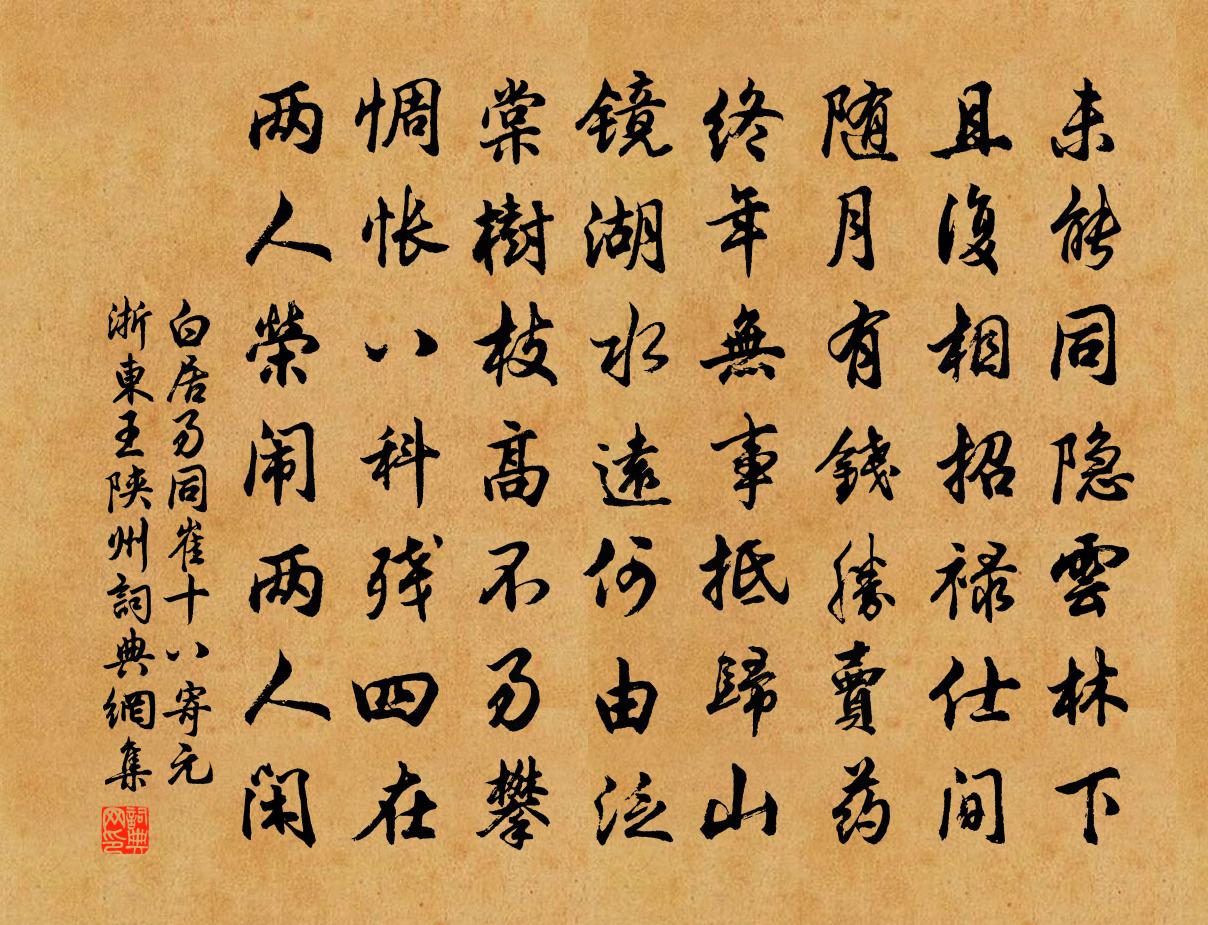 未能同隐雲林下
且復相招禄仕间
随月有錢勝賣药
终年無事抵歸山
镜湖水遠何由泛
棠樹枝高不易攀
惆怅八科残四在
两人榮闹两人闲
白居易同崔十八寄元
浙東王陕州詞典網集
詞典网印